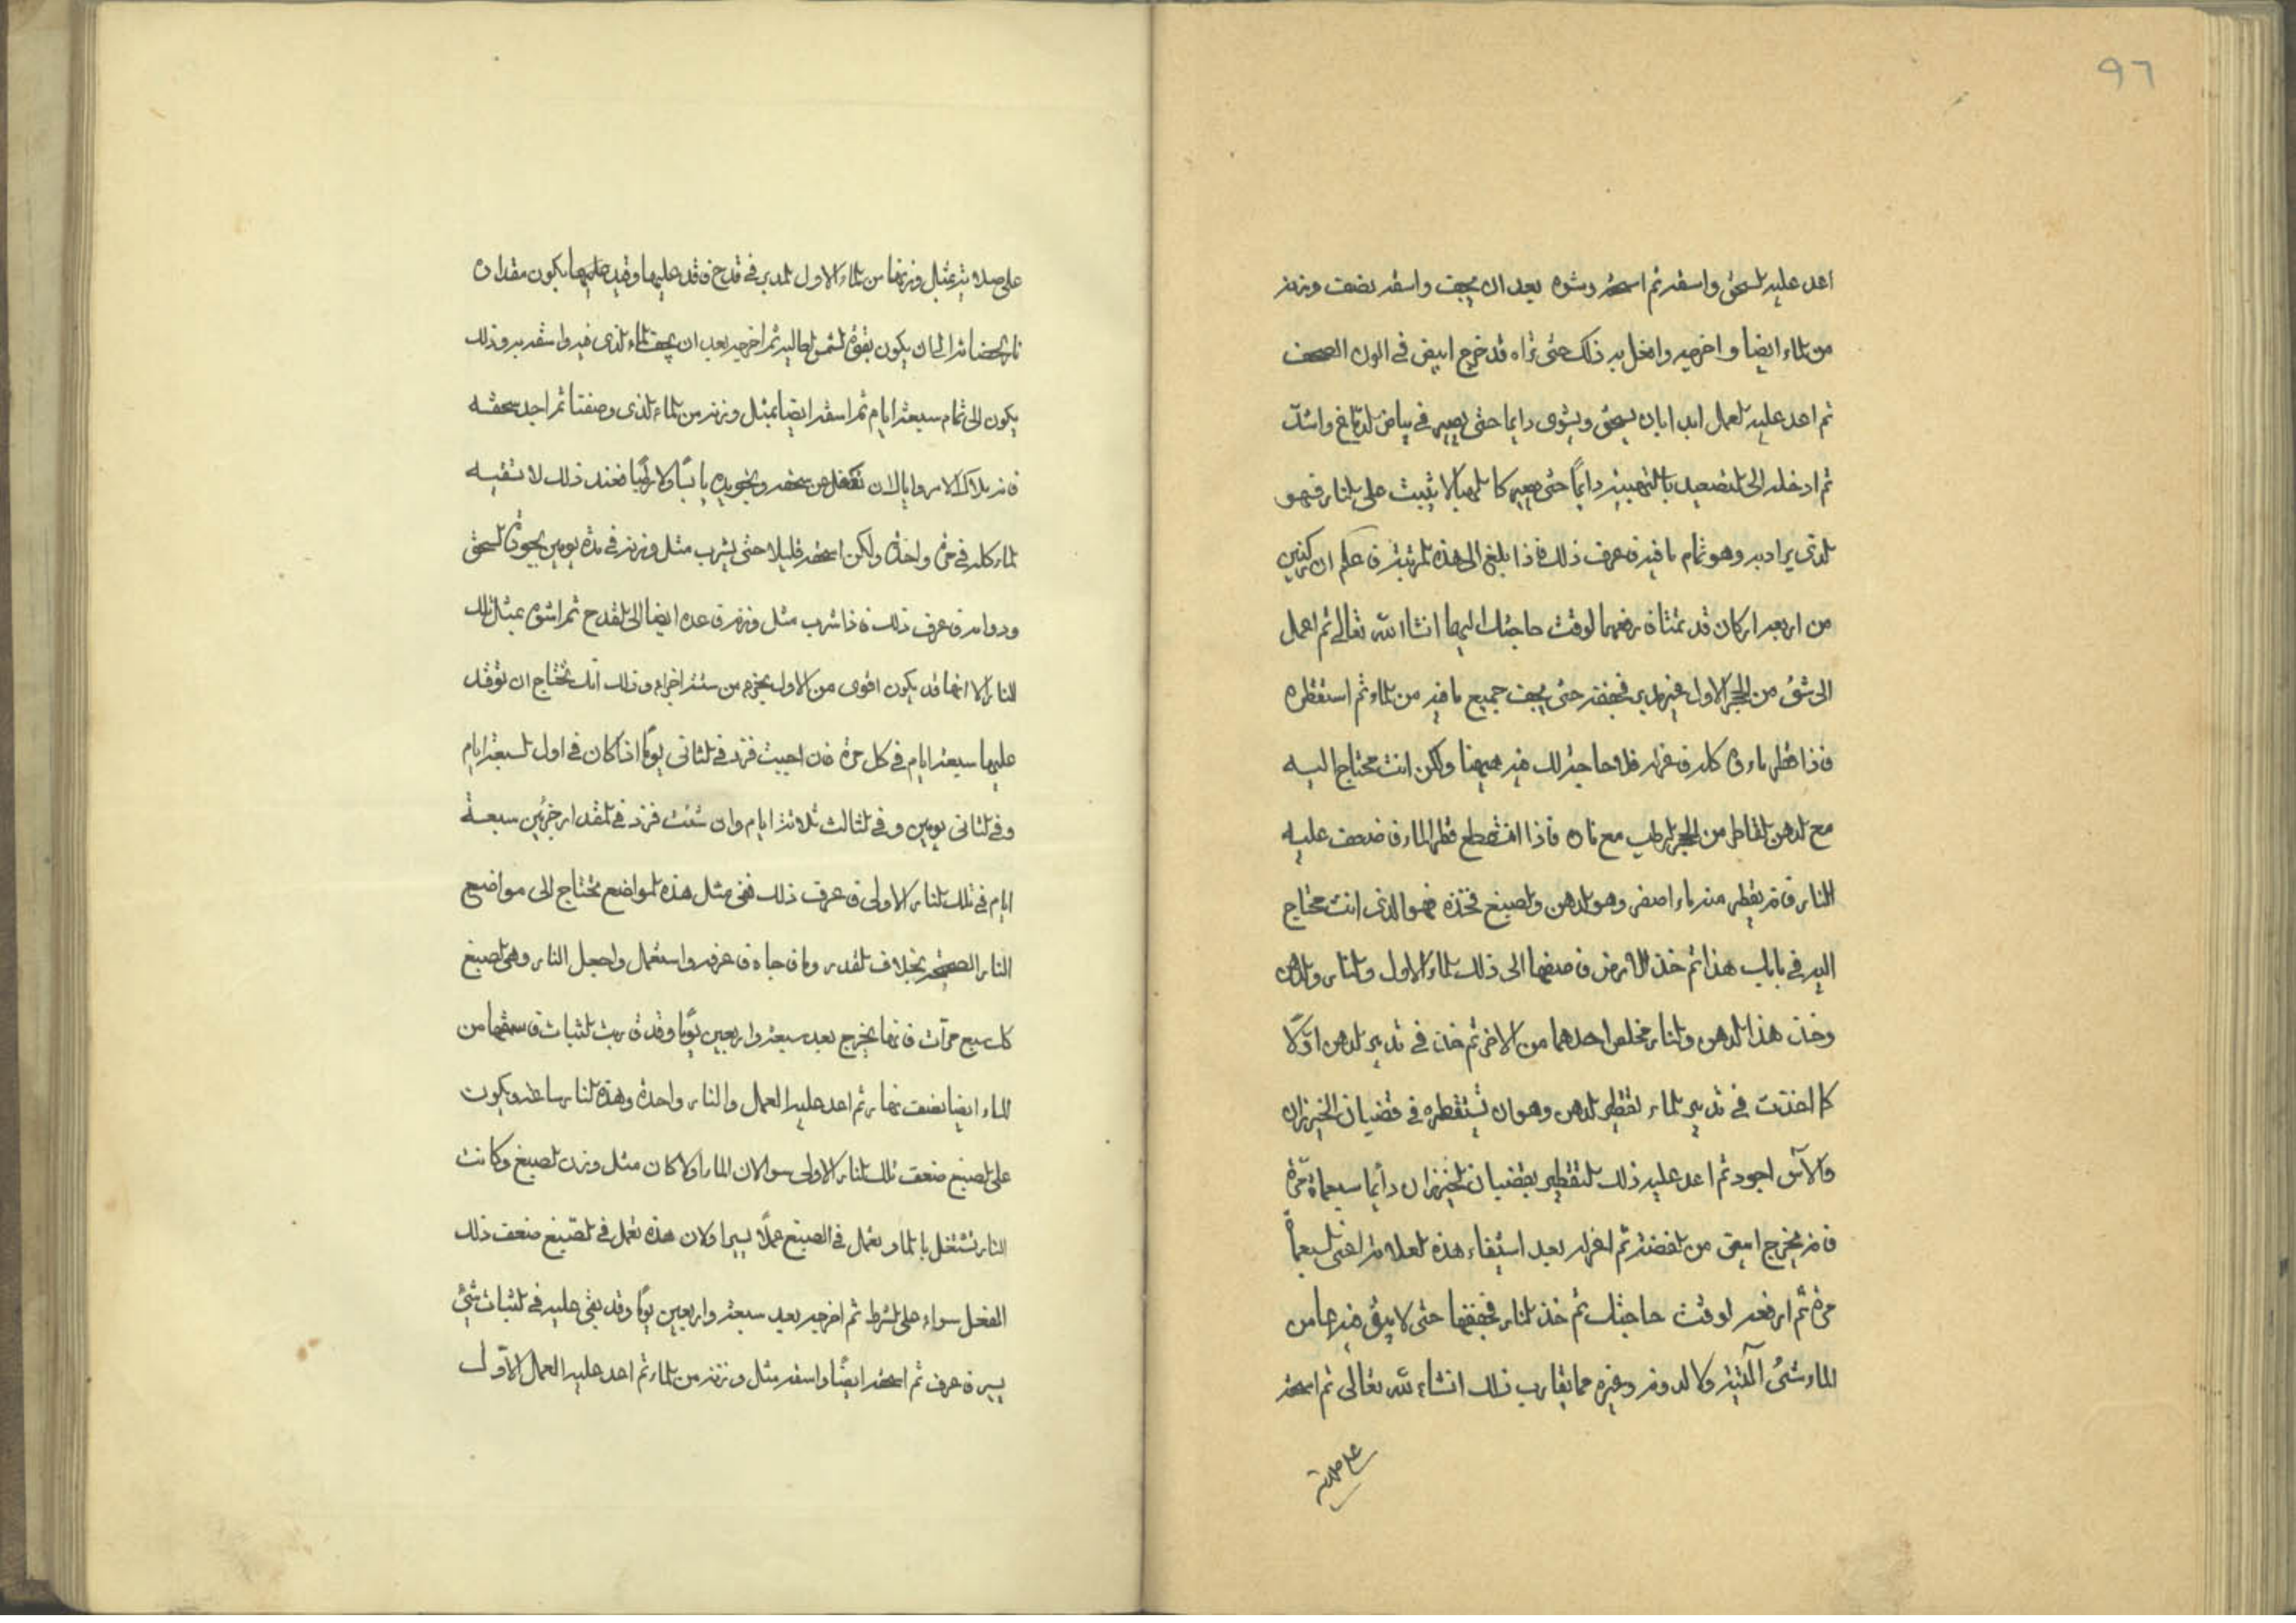 ٩٦
اعد عليه السحق واسقه ثم اسحقه وشوه بعد ان يجف واسقه نصف وزنه
من الماء ايضا واخرجه وافعل به ذلك حتى تراه قد خرج ابيض في الون
ثم اعد عليه العمل ابدا بان يسحق ويشوى دايما حتى يصير في بياض الدماغ واشد
ثم ادخله الى التصعيد دايمًا حتى يصير كالهبا لا يثبت على النار فهو
الذي يراد به وهو تمام ما فيه فاعرف ذلك فاذا بلغ الى هذه المرتبة فاعلم ان ركنين
من اربعة اركان قد تمتا فارفعهما لوقت حاجتك اليهما انشا الله تعالى ثم اعمل
الى شئ من الحجر الاول غير مدبر فجففه حتى يجف جميع ما فيه من الماء ثم استقطره
فاذا قطر ماءه كله فاعزله فلا حاجة لك فيه هيهنا ولكن انت محتاج اليه
مع الدهن القاطر من الحجر الرطب مع ناره فاذا انقطع قطر الماء فاضعف عليه
النار فانه يقطر منه ماء اصفر وهو الدهن والصبغ فخذه فهو الذي انت محتاج
اليه في باب هذا ثم خذ الارض فاضفها الى ذلك الماء الاول والنار والدهن
وخذ هذا الدهن والنار فخلص احدهما من الاخر ثم خذ في تدبير الدهن اوّلا
كما اخذت في تدبير الماء بتقطير الدهن وهو ان تستقطره في قضبان الخيزران
والآس اجود ثم اعد عليه ذلك التقطير بقضبان الخيزران دايما سبعماة مرّة
فانه يخرج ابيض من الفضة ثم اعزله بعد استيفاء هذه العلامة اعنى السبعماة
مرة ثم ارفعه لوقت حاجتك ثم خذ النار فجففها حتى لا يبقى فيها من
الماء شئ البتة ولا لدونة وغيره مما يقارب ذلك انشاء الله تعالى ثم اسحقه
على صلاية
على صلاية بمثل وزنها من الماء الاول المدبر في قدح فاوقد عليها وقيد عليها يكون مقداره
نار الحضانة الى ان يكون بقوة الشمس العالية ثم اخرجه بعد ان يجف الماء الذي فيه واسقه به وذلك
يكون الى تمام سبعة ايام ثم اسقه ايضا بمثل وزنه من الماء الذي وصفنا ثم اجد سحقه
فانه ملاك الامر واياك ان تغفل عن سحقه وتجويده يابسًا ولا رطبًا فعند ذلك لا تسقيه
الماء كله في مرة واحدة ولكن اسحقه قليلا حتى يشرب مثل وزنه في مدة يومين بجودة السحق
ودوامه فاعرف ذلك فاذا شرب مثل وزنه فاعده ايضا الى القدح ثم اشوه بمثل تلك
النار الا انها قد يكون اقوى من الاول بجزء من ستة اجزاء وذلك انك تحتاج ان توقد
عليها سبعة ايام في كل مرة فان احببت فزد في الثاني يومًا اذا كان في اول السبعة ايام
وفي الثاني يومين وفي الثالث ثلاثة ايام وان شئت فزد في المقدار جزئين سبعة
ايام في تلك النار الاولى فاعرف ذلك ففي مثل هذه المواضع تحتاج الى مواضيع
النار بخلاف القدر وما جاه فاعرفه واستعمل واجعل النار وهى الصبغ
كل سبع مرّات فانها يخرج بعد سبعة واربعين يومًا وقد قاربت الثبات فاسقها من
الماء ايضا نصف نهار ثم اعد عليه العمل والنار واحدة وهذه النار ساعة ويكون
على الصبغ ضعف تلك النار الاولى سوا لان الماء اولا كان مثل وزن الصبغ وكانت
النار تشتغل بالماء وتعمل في الصبغ عملًا يسيرا ولان هذه تعمل في الصبغ ضعف ذلك
الفعل سواء على الشرط ثم اخرجه بعد سبعة واربعين يومًا وقد بقى عليه في الثبات شئ
يسير فاعرف ثم اسحقه ايضًا واسقه مثل وزنه من الماء ثم اعد عليه العمل الاوّل